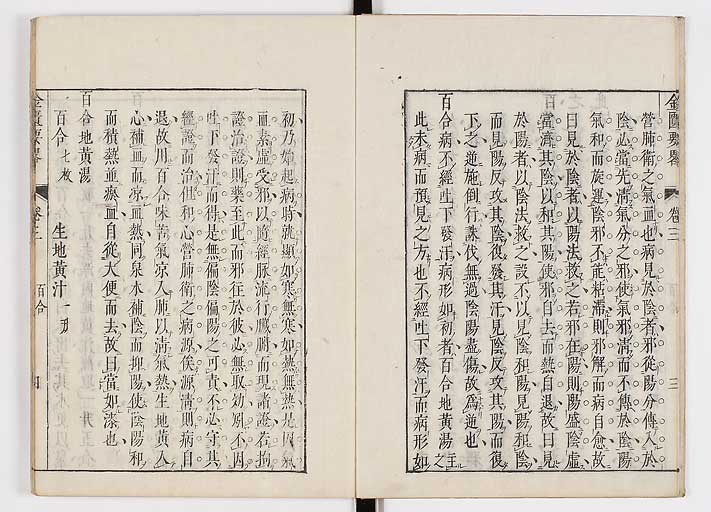 金匱要畧 卷三 三
營肺衛之氣血也病見於陰者邪從陽分傳入於
陰必當先淸氣分之邪使氣邪淸而不傳於陰陽
氣和而旋運陰邪不能枯滯則邪解而病自愈故
曰見於陰者以陽法救之若邪在陽則陽盛陰虛
當濟其陰以和其陽使邪自去而熱自退故曰見
於陽者以陰法救之設不以見陰和陽見陽和陰
而見陽反攻其陰復發其汗見陰反攻其陽而復
下之逆施倒行誅伐無過陰陽盡傷故爲逆也
百合病不經吐下發汗病形如初者百合地黃湯主之
此未病而預見之方也不經吐下發汗而病形如
初乃始起病時就顯如寒無寒如熱無熱是因
血素虛受邪以隨經脉流行臟腑而現諸證若拘
證治證則藥至此而邪在於彼必無取効別不因
吐下發汗而得是無偏陰偏陽之可責不必守其
經證而治但和心營肺衛之病源俟源淸則病自
退故用百合味苦氣凉入肺以淸氣熱生地黃入
心補血而凉血熱同泉水補陰而抑陽使陰陽和
而積熱並瘀血自從大便而去故曰當如漆也
百合地黃湯
百合七枚 生地黃汁一升
金匱要畧 卷三 百合 四